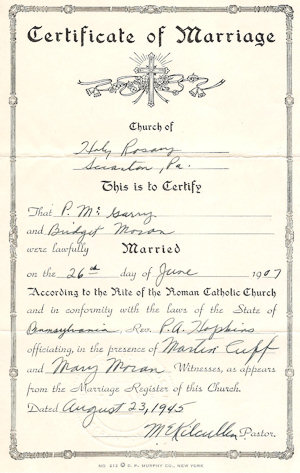 Certificate of Marriage
Church of
Holy Rosary
Scranton, Pa.
This is to Certify
That P. Mc Garry
and Bridget Moran
were lawfully Married
on the 26th day of June 1907
According to the Rite of the Roman Catholic Church
and in conformity with the laws of the State of
Pennsylvania, Rev. P.A. Hopkins
officiating, in the presence of Martin Cuff
and Mary Moran. Witnesses, as appears
from the Marriage Register of this Church.
Dated August 23, 1945
McKilcullen Pastor.
NO. 213 © D. P. MURPHY CO., NEW YORK